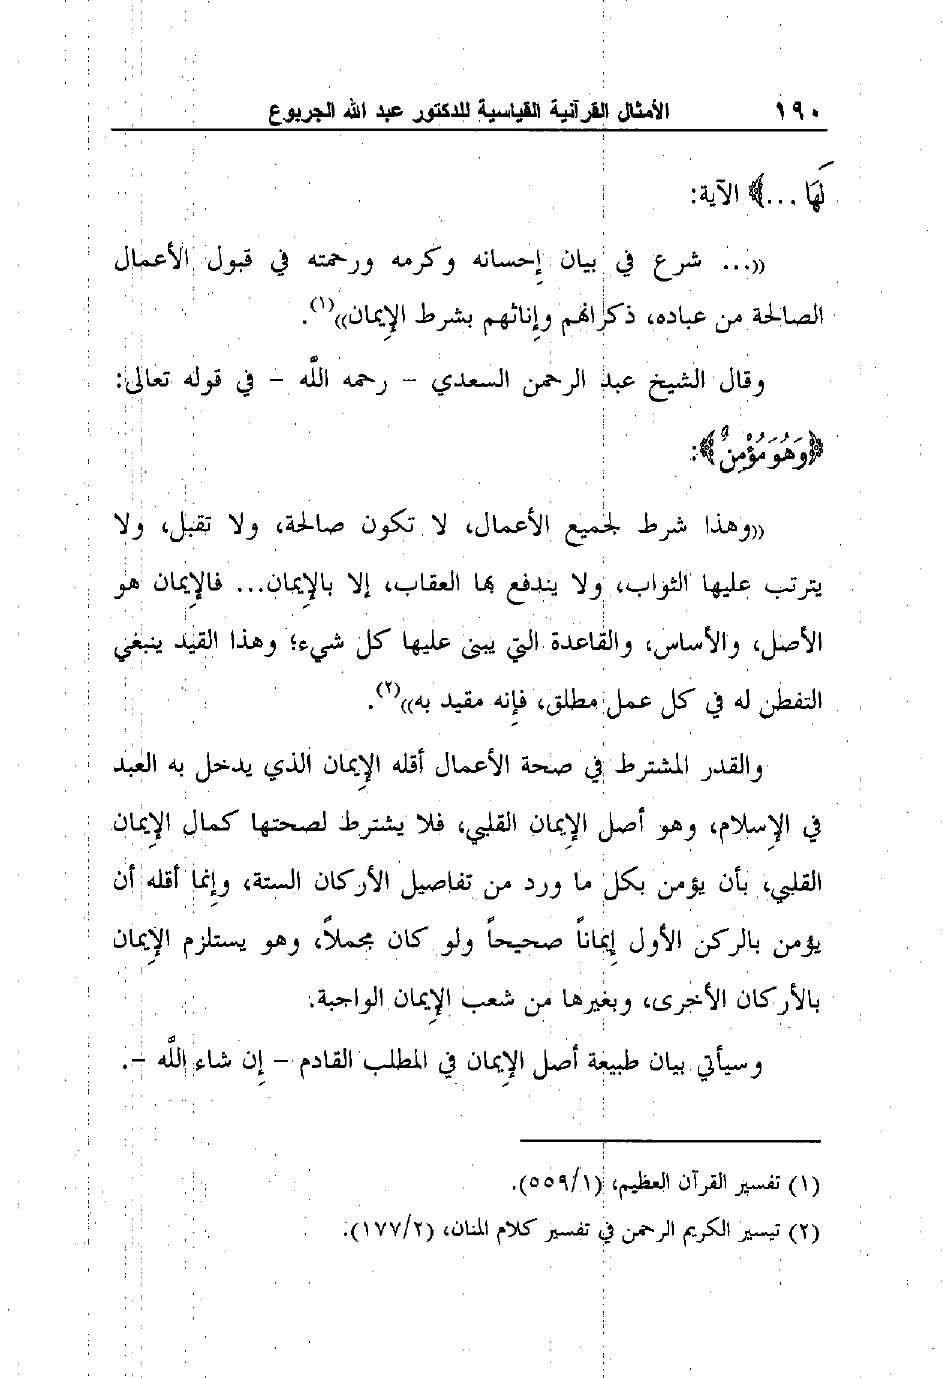 ١٩٠ الأمثال القرآنية القياسية للدكتور عبد الله الجربوع
لَهَا ...﴾ الآية:
((... شرع في بيان إحسانه وكرمه ورحمته في قبول الأعمال
الصالحة من عباده، ذكرانهم وإناثهم بشرط الإيمان))(١).
وقال الشيخ عبد الرحمن السعدي - رحمه اللَّه - في قوله تعالى:
﴿وَهُوَ مُؤْمِنٌ﴾:
((وهذا شرط لجميع الأعمال، لا تكون صالحة، ولا تقبل، ولا
يترتب عليها الثواب، ولا يندفع بها العقاب، إلا بالإيمان... فالإيمان هو
الأصل، والأساس، والقاعدة التي يبنى عليها كل شيء؛ وهذا القيد ينبغي
التفطن له في كل عمل مطلق، فإنه مقيد به))(٢).
والقدر المشترط في صحة الأعمال أقله الإيمان الذي يدخل به العبد
في الإسلام، وهو أصل الإيمان القلبي، فلا يشترط لصحتها كمال الإيمان
القلبي، بأن يؤمن بكل ما ورد من تفاصيل الأركان الستة، وإنما أقله أن
يؤمن بالركن الأول إيماناً صحيحاً ولو كان مجملاً، وهو يستلزم الإيمان
بالأركان الأخرى، وبغيرها من شعب الإيمان الواجبة.
وسيأتي بيان طبيعة أصل الإيمان في المطلب القادم - إن شاء اللَّه -.
(١) تفسير القرآن العظيم، (٥٥٩/١).
(٢) تيسير الكريم الرحمن في تفسير كلام المنان، (١٧٧/٢).